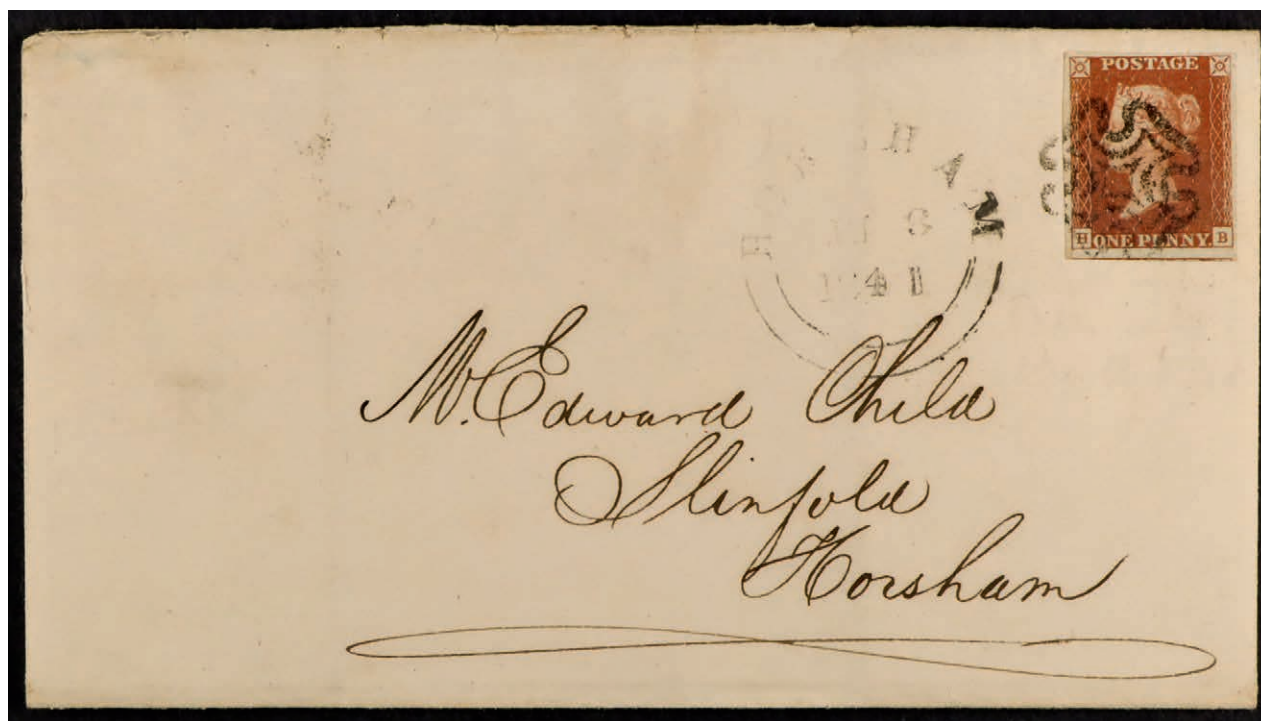 POSTAGE
H ONE PENNY B
HORSHAM
1841
Mr. Edward Child
Slinfold
Horsham